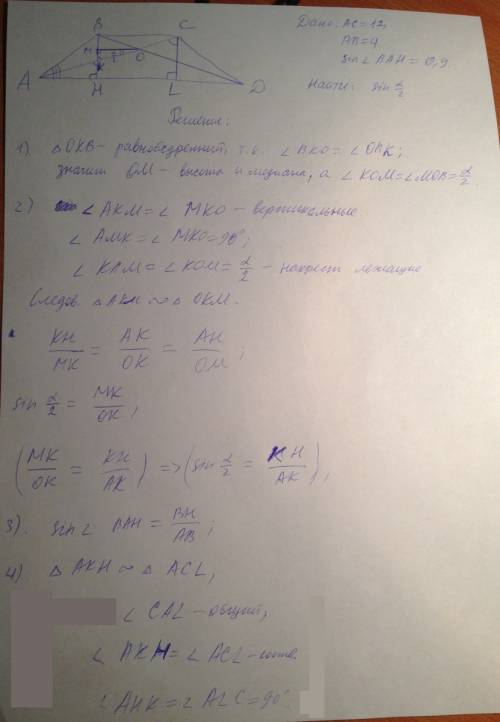 B C
M O
K
A H L D
Дано: AC=12,
AB=9
sin∠BAH=0,9
Найти: sin α/2
Решение:
1) △OKB - равнобедренный, т.к. ∠BKO=∠OBK;
значит OM - высота и медиана, а ∠KOM=∠MOB=α/2.
2) ∠AKM=∠MKO - вертикальные
∠AMK=∠MKO=90°;
∠KAM=∠KOM=α/2 - накрест лежащие
Следов. △AKH∾△OKM.
KH/MK = AK/OK = AH/OM;
sin α/2 = MK/OK,
(MK/OK = KH/AK) =>(sin α/2 = KH/AK),
3). sin∠ BAH = BH/AB;
4) △AKH∾△ACL,
∠CAL - общий,
∠AKH=∠ACL - соотв.
∠AHK=∠ALC=90°